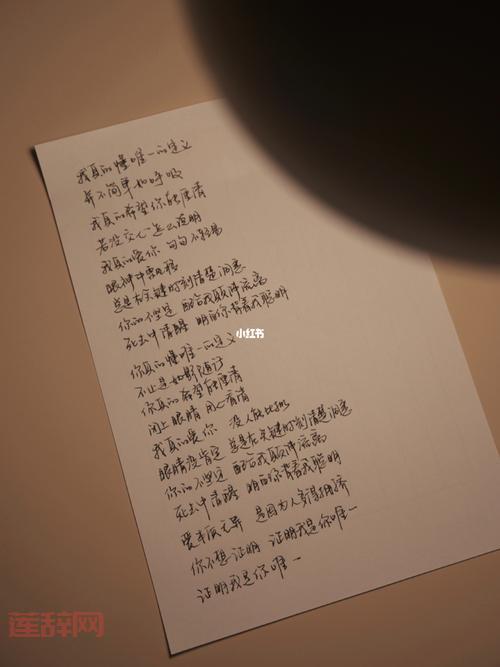 我真的懂唯一的定义
并不简单如呼吸
我真的希望你能厘清
若没交心怎么说明
我真的爱你 句句不轻易
眼神中飘移
总是在关键时刻清楚洞悉
你的不坚定 配合我颠沛流离
死去中清醒 明白你背着我聪明
小红书
你真的懂唯一的定义
不止是如影随行
你真的希望能厘清
闭上眼睛 用心看清
我真的爱你 没人能比拟
眼睛没肯定 总是在关键时刻清楚洞悉
你的不坚定 配合我颠沛流离
死去中清醒 明白你背着我聪明
爱本质无异 是因为人多得拥挤
你不想证明 证明我是你唯一
证明我是你唯一
莲辞网